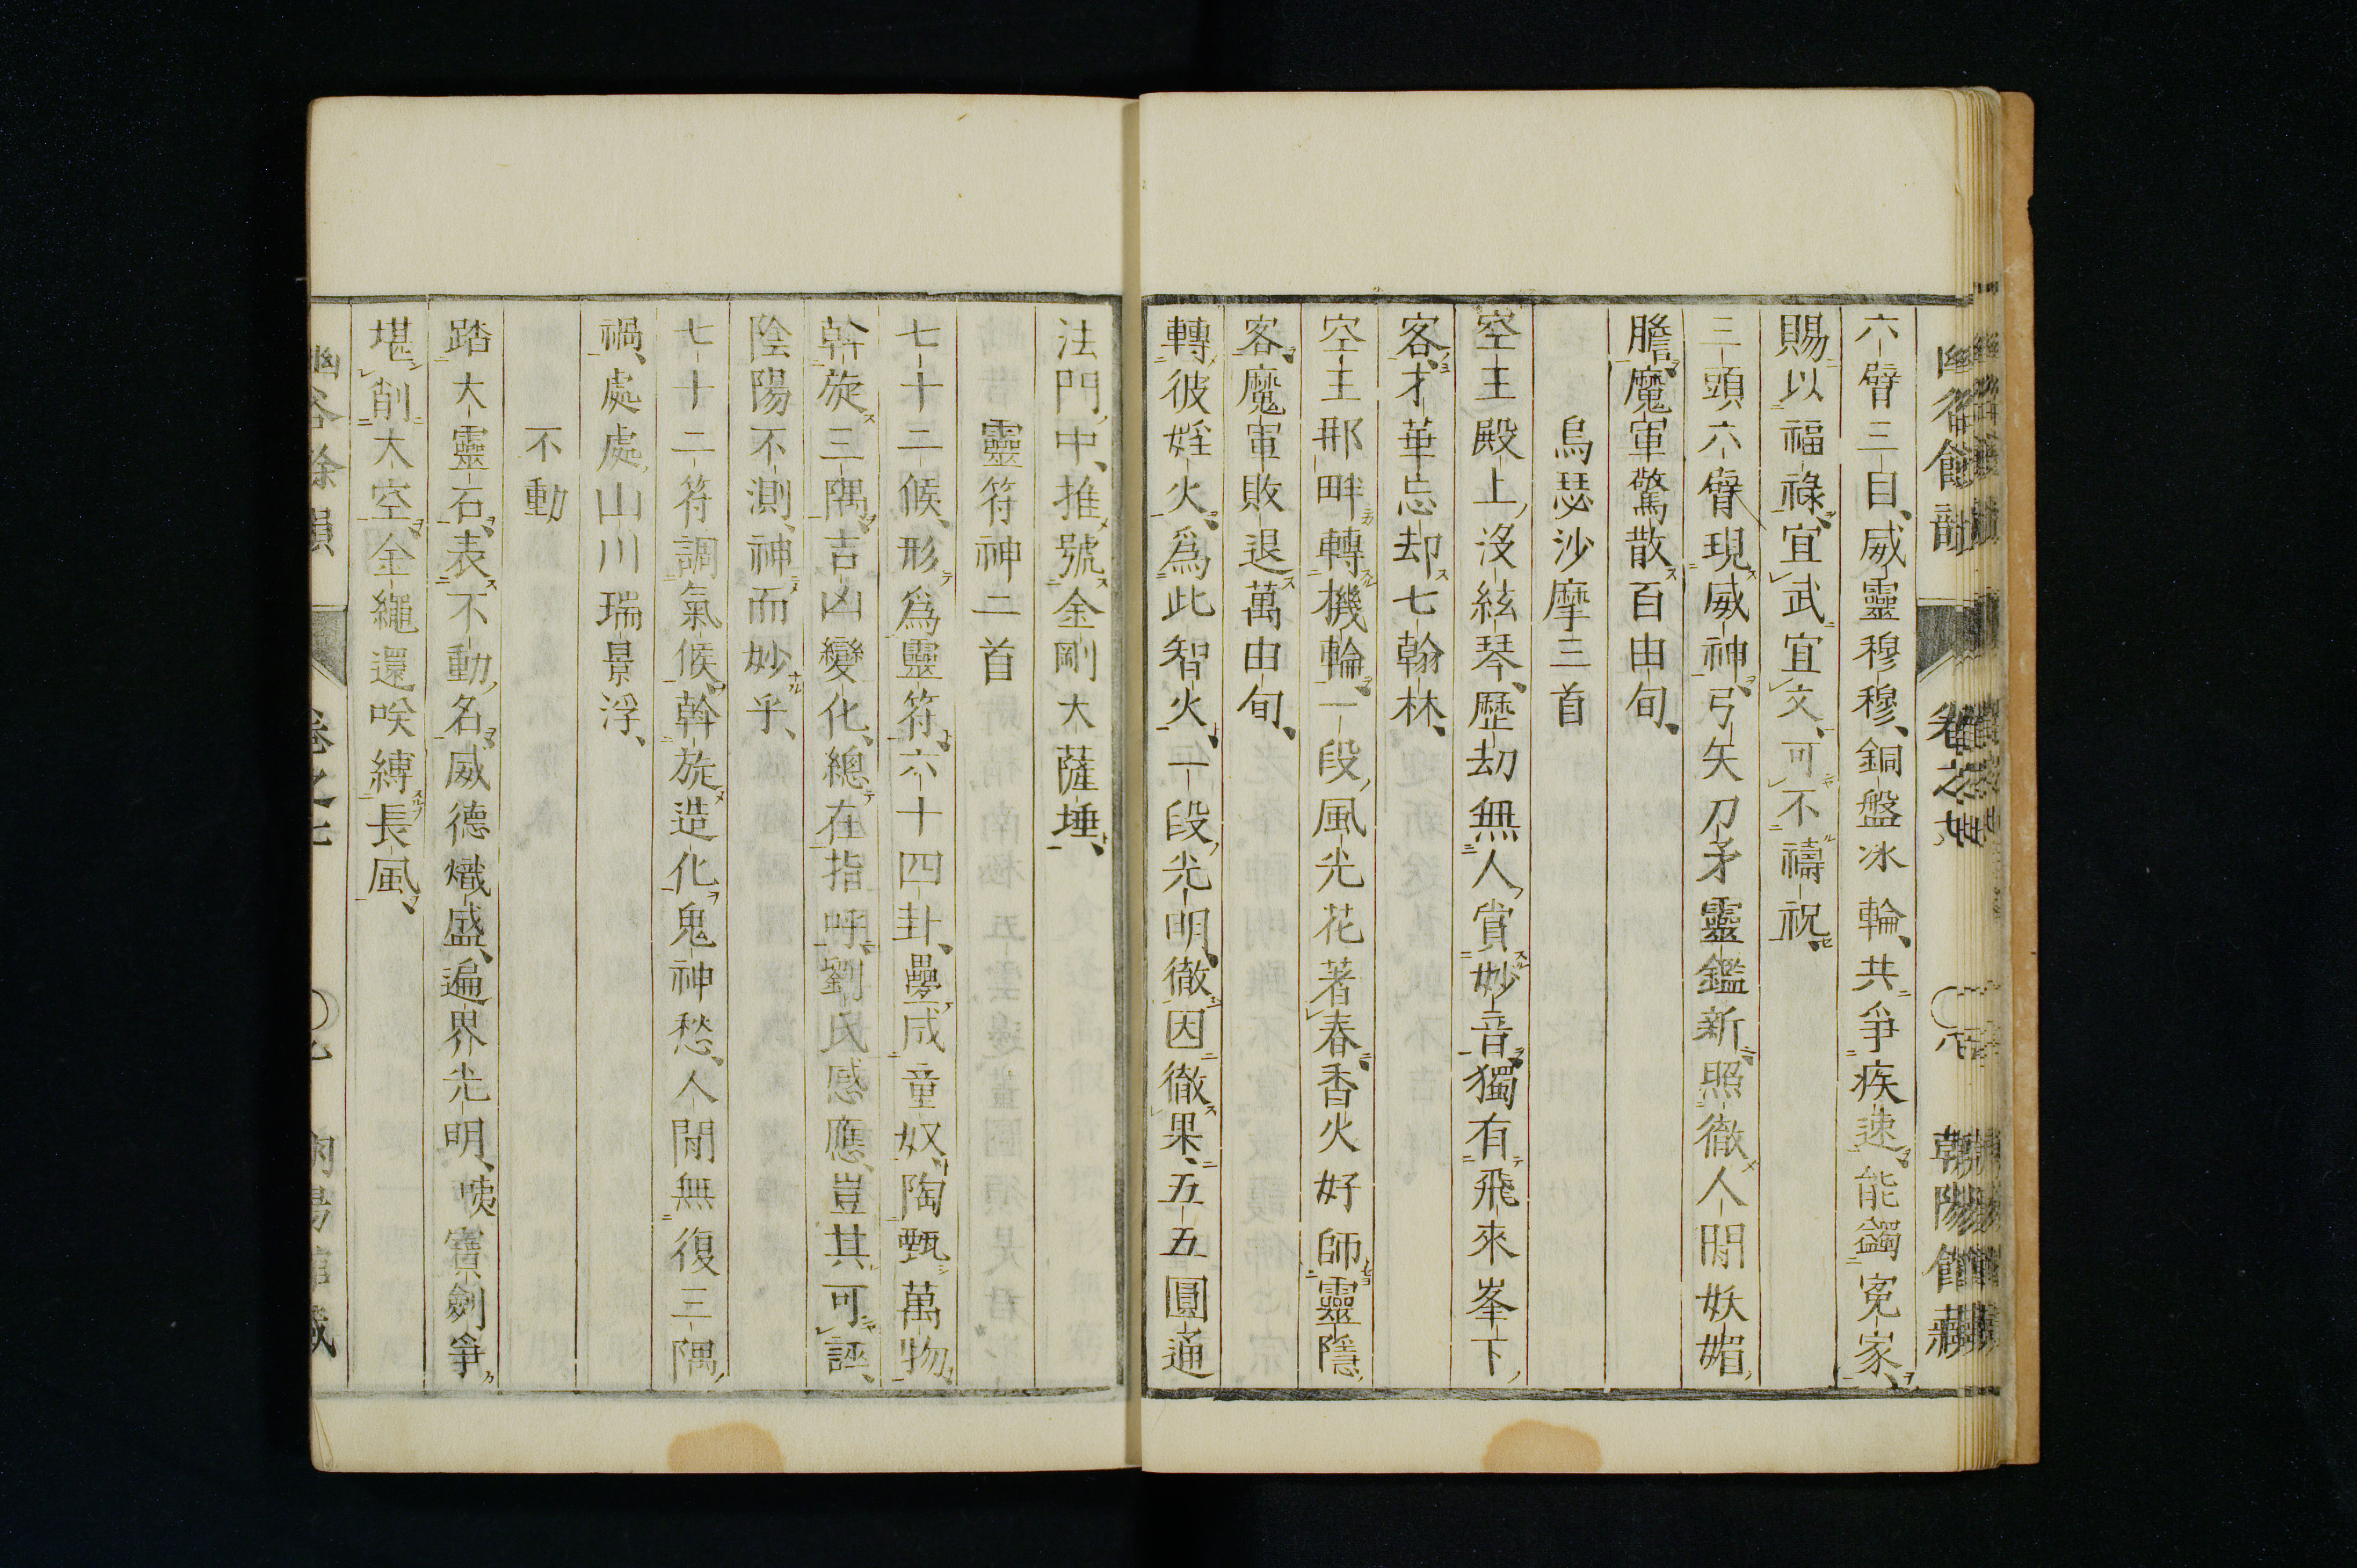 六臂三目、威靈穆穆、銅盤冰輪、共爭疾速、能蠲冤家、
賜以福祿、宜武宜文、可不禱祝、
三頭六臂現威神、弓矢刀矛靈鑑新、照徹人間妖媚
膽、魔軍驚散百由旬、
烏瑟沙摩三首
空王殿上沒絃琴、歷劫無人賞妙音、獨有飛來峯下
客、才華忘却七翰林、
空王那畔轉機輪、一段風光花著春、香火好師靈隱
客、魔軍敗退萬由旬、
轉彼婬火、爲此智火、一段光明、徹因徹果、五五圓通
法門中、推號金剛大薩埵、
靈符神二首
七十二候、形爲靈符、六十四卦、疊成童奴、陶甄萬物、
斡旋三隅、吉凶變化、總在指呼、劉氏感應、豈其可誣、
陰陽不測、神而妙乎、
七十二符調氣候、斡旋造化鬼神愁、人間無復三隅
禍、處處山川瑞景浮、
不動
踏大靈石、表不動名、威德熾盛、遍界光明、咦寶劍爭
堪削大空、金繩還咲縛長風、
幽谷餘韻 卷之七 朝陽館藏